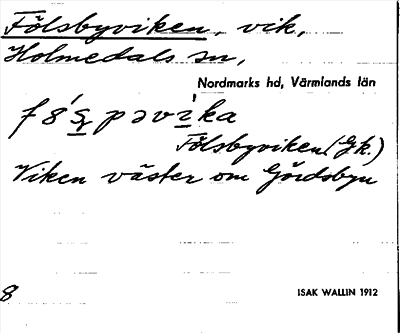 Fölsbyviken, vik,
Holmedals sn,
Nordmarks hd, Värmlands län
Fölsbyviken (Gk.)
Viken väster om Gördsbyn
8
ISAK WALLIN 1912